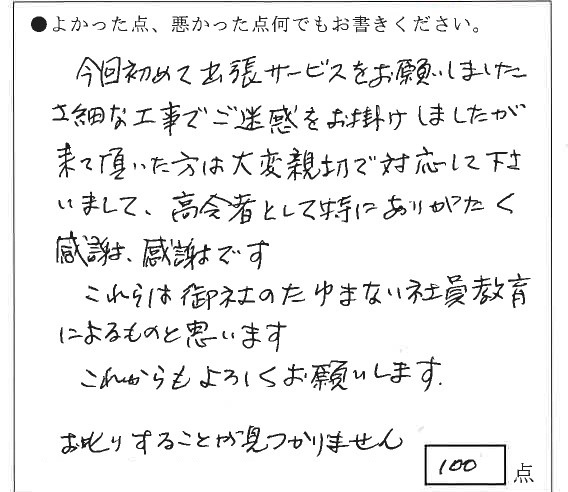 ●よかった点、悪かった点何でもお書きください。
今回初めて出張サービスをお願いしました
さ細な工事でご迷惑をお掛けしましたが
来て頂いた方は大変親切で対応して下さ
いまして、高令者として特にありがたく
感謝、感謝です
これらは御社のたゆまない社員教育
によるものと思います
これからもよろしくお願いします.
お叱りすることが見つかりません
100 点